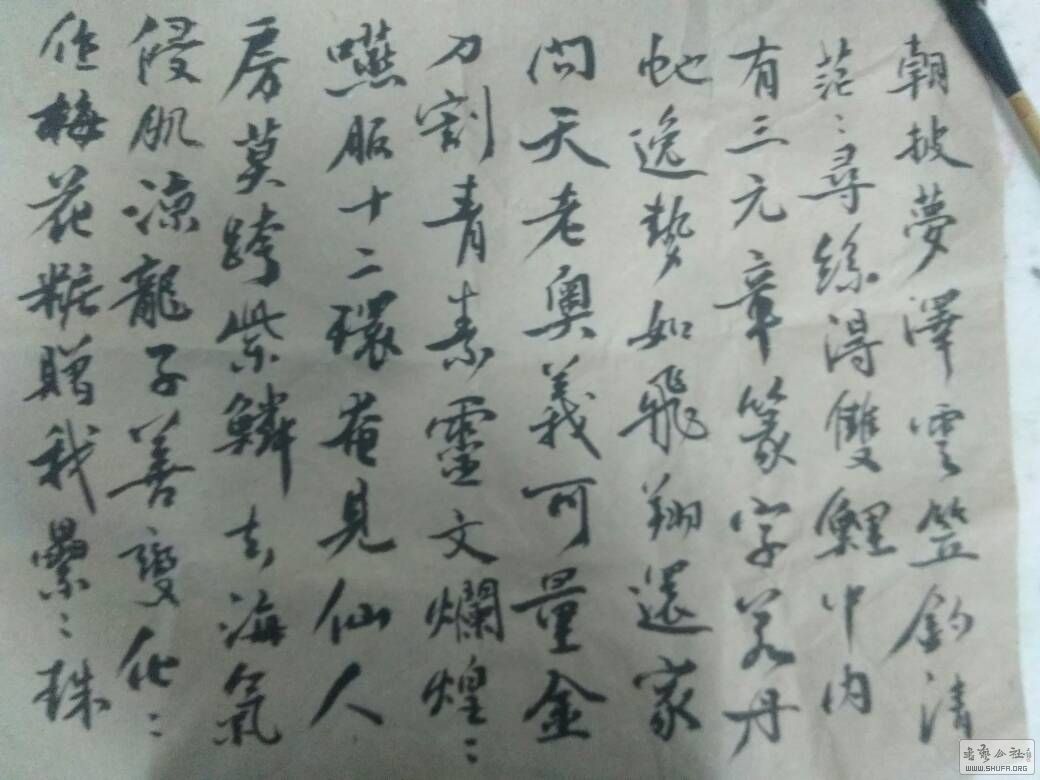 朝披夢澤雲笠釣清
茫〻尋絲得雙鯉中內
有三元章篆字若丹
虵逸勢如飛翔還家
問天老奧義可量金
刀割青素靈文爛煌〻
嚥服十二環奄見仙人
房莫跨紫鱗去海氣
侵肌涼龍子善變化〻
作梅花粧贈我纍〻珠
書藝公社
WWW.SHUFA.ORG